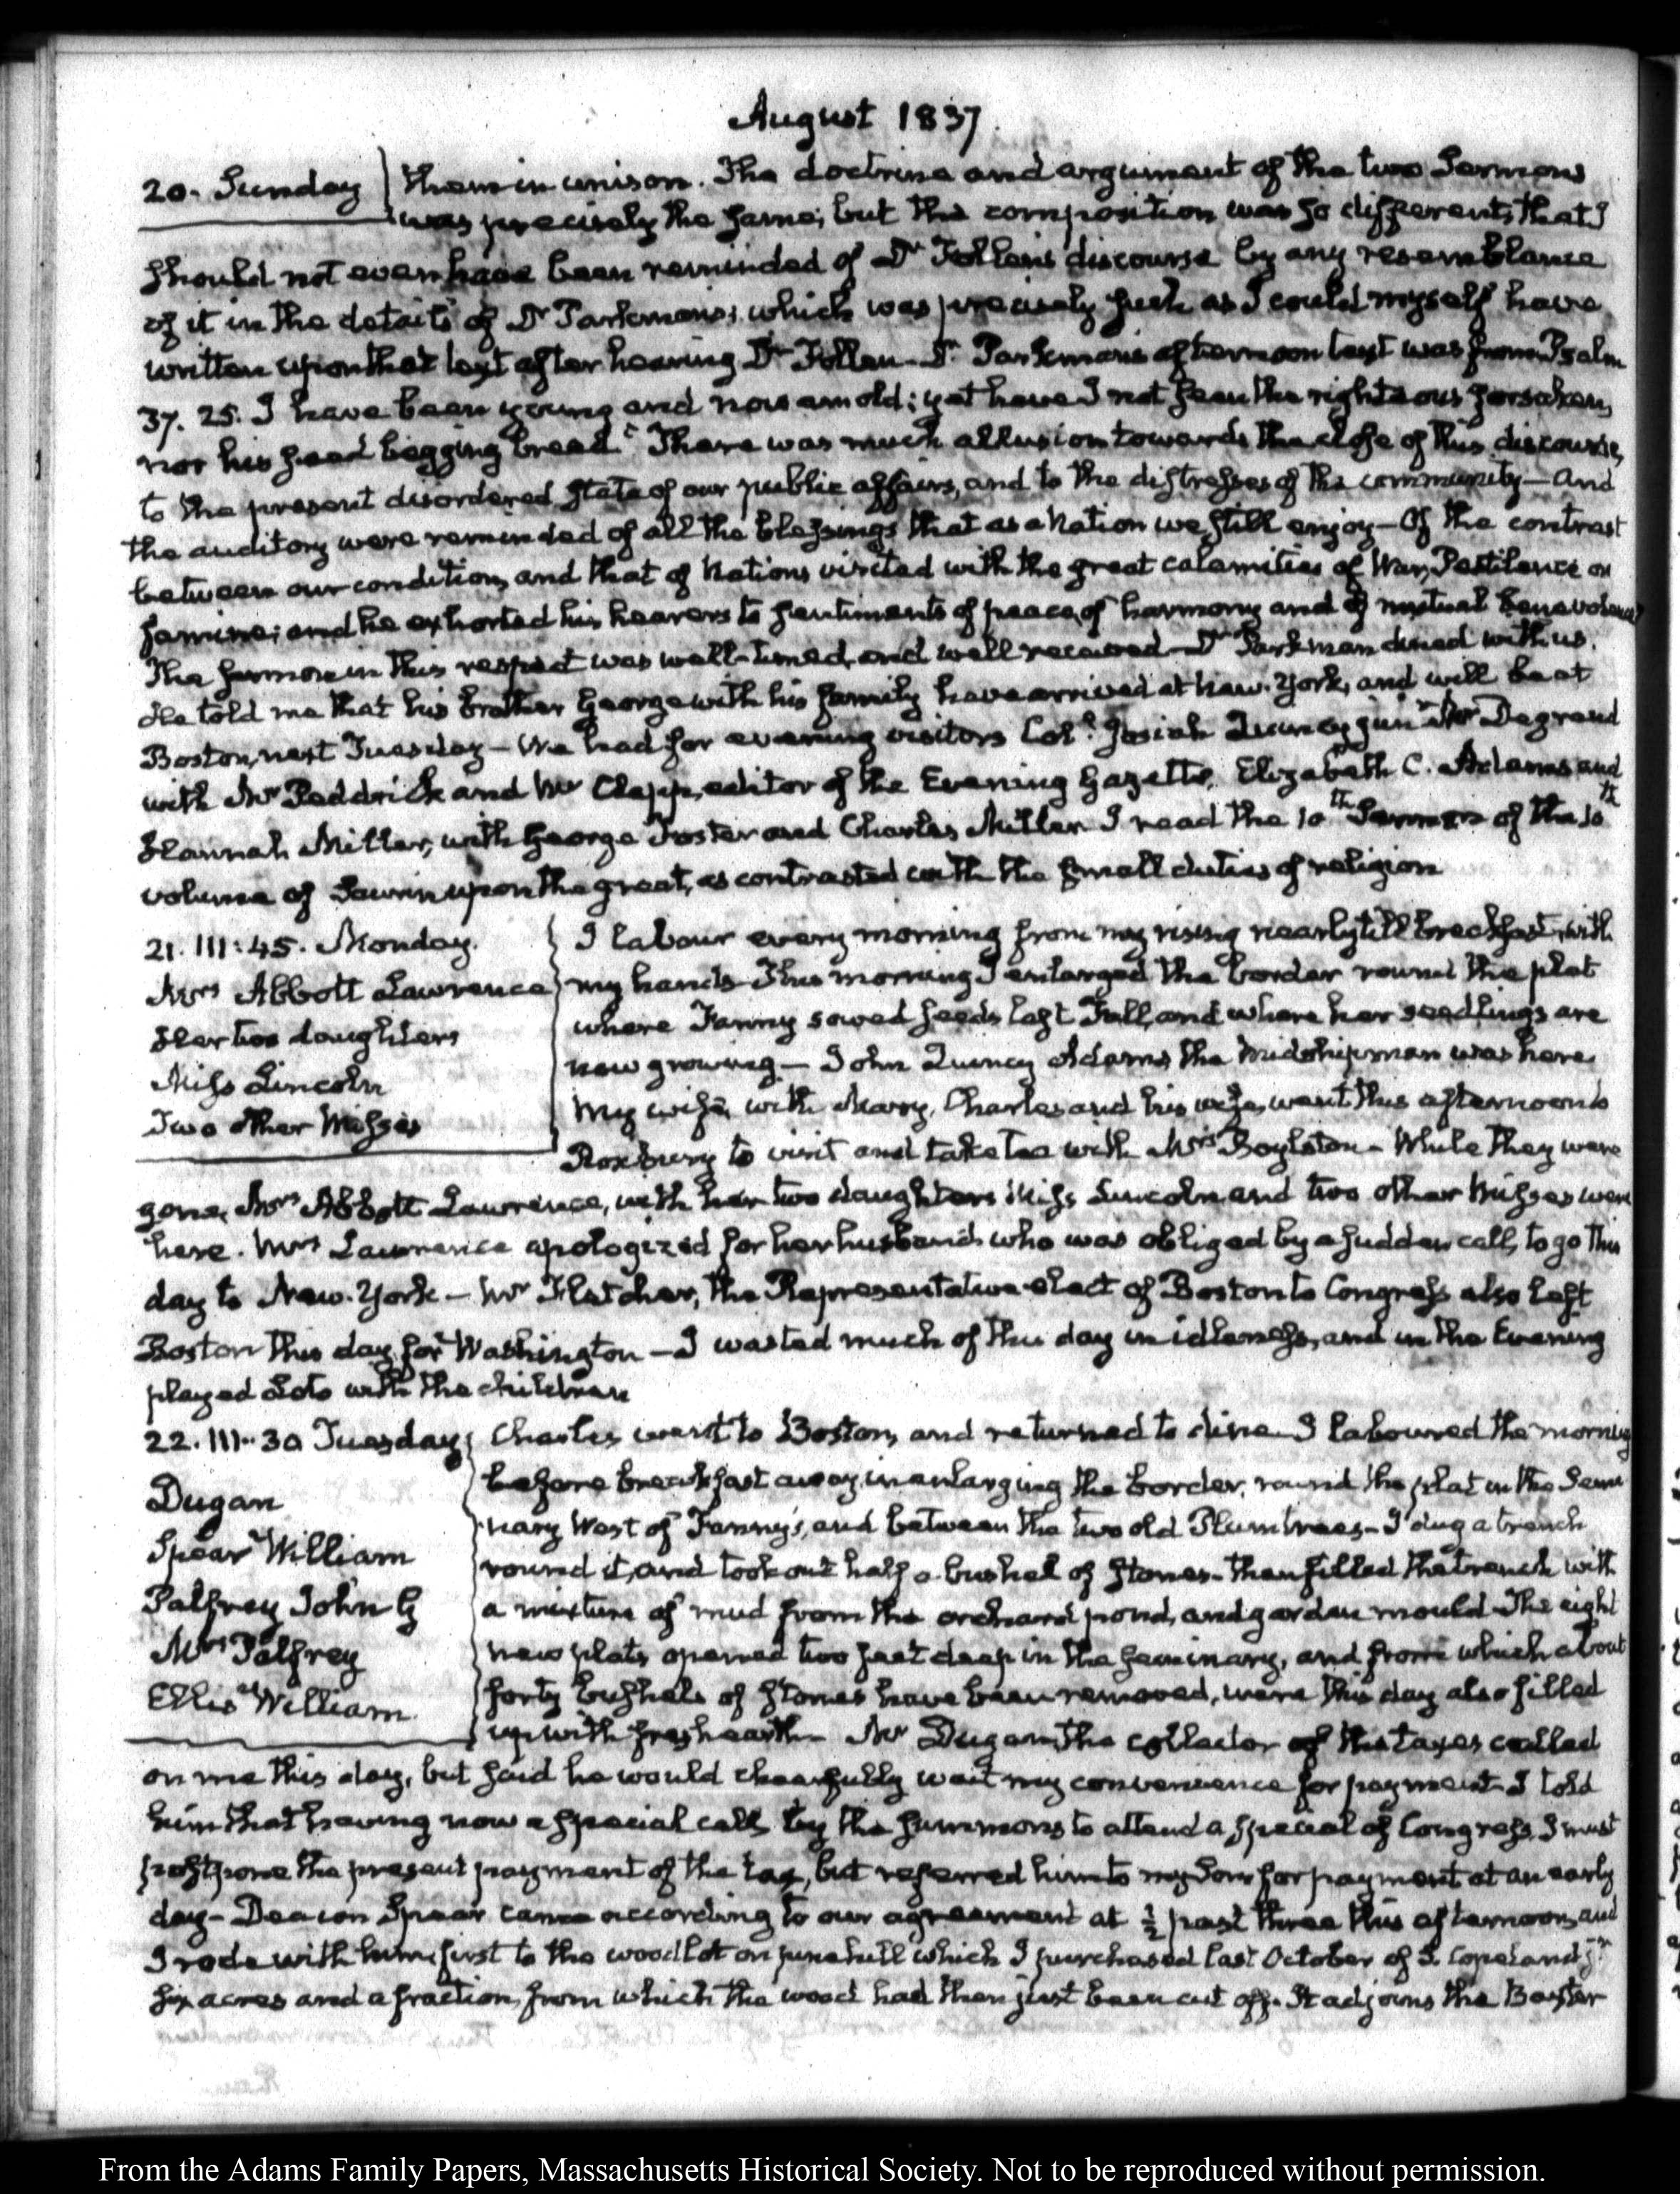 August 1837
20. Sunday
them in unison. The doctrine and argument of the two Sermons
was precisely the same; but the composition was so different, that I
should not even have been reminded of Dr Follen's discourse by any resemblance
of it in the details of Dr Parkman's; which was precisely such as I could myself have
written upon that text after hearing Dr Follen. Dr Parkman's afternoon text was from Psalm
37. 25. I have been young and now am old; yet have I not seen the righteous forsaken,
nor his seed begging bread" There was much allusion towards the close of this discourse,
to the present disordered state of our public affairs, and to the distresses of the community — And
the auditory were reminded of all the blessings that as a Nation we still enjoy — Of the contrast
between our condition, and that of Nations visited with the great calamities of War, Pestilence or
famine; and he exhorted his hearers to sentiments of peace, of harmony and of mutual benevolence
The sermon in this respect was well-timed, and well received — Dr Parkman dined with us.
He told me that his brother George with his family have arrived at New-York, and will be at
Boston, next Tuesday — We had for evening visitors Col. Josiah Quincy junr Mr Degrand
with Mr Peddrick and Mr Clapp, editor of the Evening Gazette, Elizabeth C. Adams and
Hannah Miller, with George Foster and Charles Miller. I read the 10th Sermon of the 10th
volume of Saurin upon the great, as contrasted with the small duties of religion
21. III:45. Monday.
Mrs Abbott Lawrence
Her two daughters
Miss Lincoln
Two other Misses
I labour every morning from my rising nearly till breakfast, with
my hands — This morning I enlarged the border round the plat
where Fanny sowed seeds last Fall, and where her seedlings are
now growing — John Quincy Adams the Midshipman was here.
My wife, with Mary, Charles and his wife, went this afternoon to
Roxbury to visit and take tea with Mrs Boylston — While they were
gone, Mrs Abbott Lawrence, with her two daughters Miss Lincoln and two other Misses were
here. Mrs Lawrence apologized for her husband who was obliged by a sudden call, to go this
day to New-York — Mr Fletcher, the Representative elect of Boston to Congress also left
Boston this day for Washington — I wasted much of this day in idleness, and in the Evening
played Loto with the children
22. III:30 Tuesday
Dugan
Spear William
Palfrey John G
Mrs Palfrey
Ellis William.
Charles went to Boston, and returned to dine. I laboured the morning
before breakfast away, in enlarging the border, round the plat in the Semi
nary West of Fanny's, and between the two old Plumtrees — I dug a trench
round it, and took out half a bushel of stones — then filled the trench with
a mixture of mud from the orchard pond, and garden mould — The eight
new plats opened two feet deep in the seminary, and from which about
forty bushels of stones have been removed, were this day also filled
up with fresh earth — Mr Dugan, the collector of the taxes called
on me this day, but said he would cheerfully wait my convenience for payment. I told
him that having now a special call by the summons to attend a special of Congress, I must
postpone the present payment of the tax, but referred him to my Son for payment at an early
day — Deacon Spear came according to our agreement at ½ past three this afternoon, and
I rode with him, first to the wood lot on pine hill which I purchased last October of S. Copeland jr
six acres and a fraction, from which the wood had then just been cut off. It adjoins the Baxter
From the Adams Family Papers, Massachusetts Historical Society. Not to be reproduced without permission.